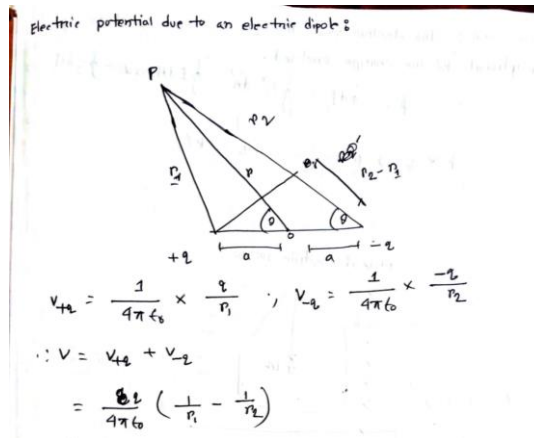 Electric potential due to an electric dipole:
P
r2
r1
r
r2 - r1
θ
θ
o
+q
a
a
-q
V+q = 1/4πε0 × q/r1 ; V-q = 1/4πε0 × -q/r2
∴ V = V+q + V-q
= q/4πε0 (1/r1 - 1/r2)